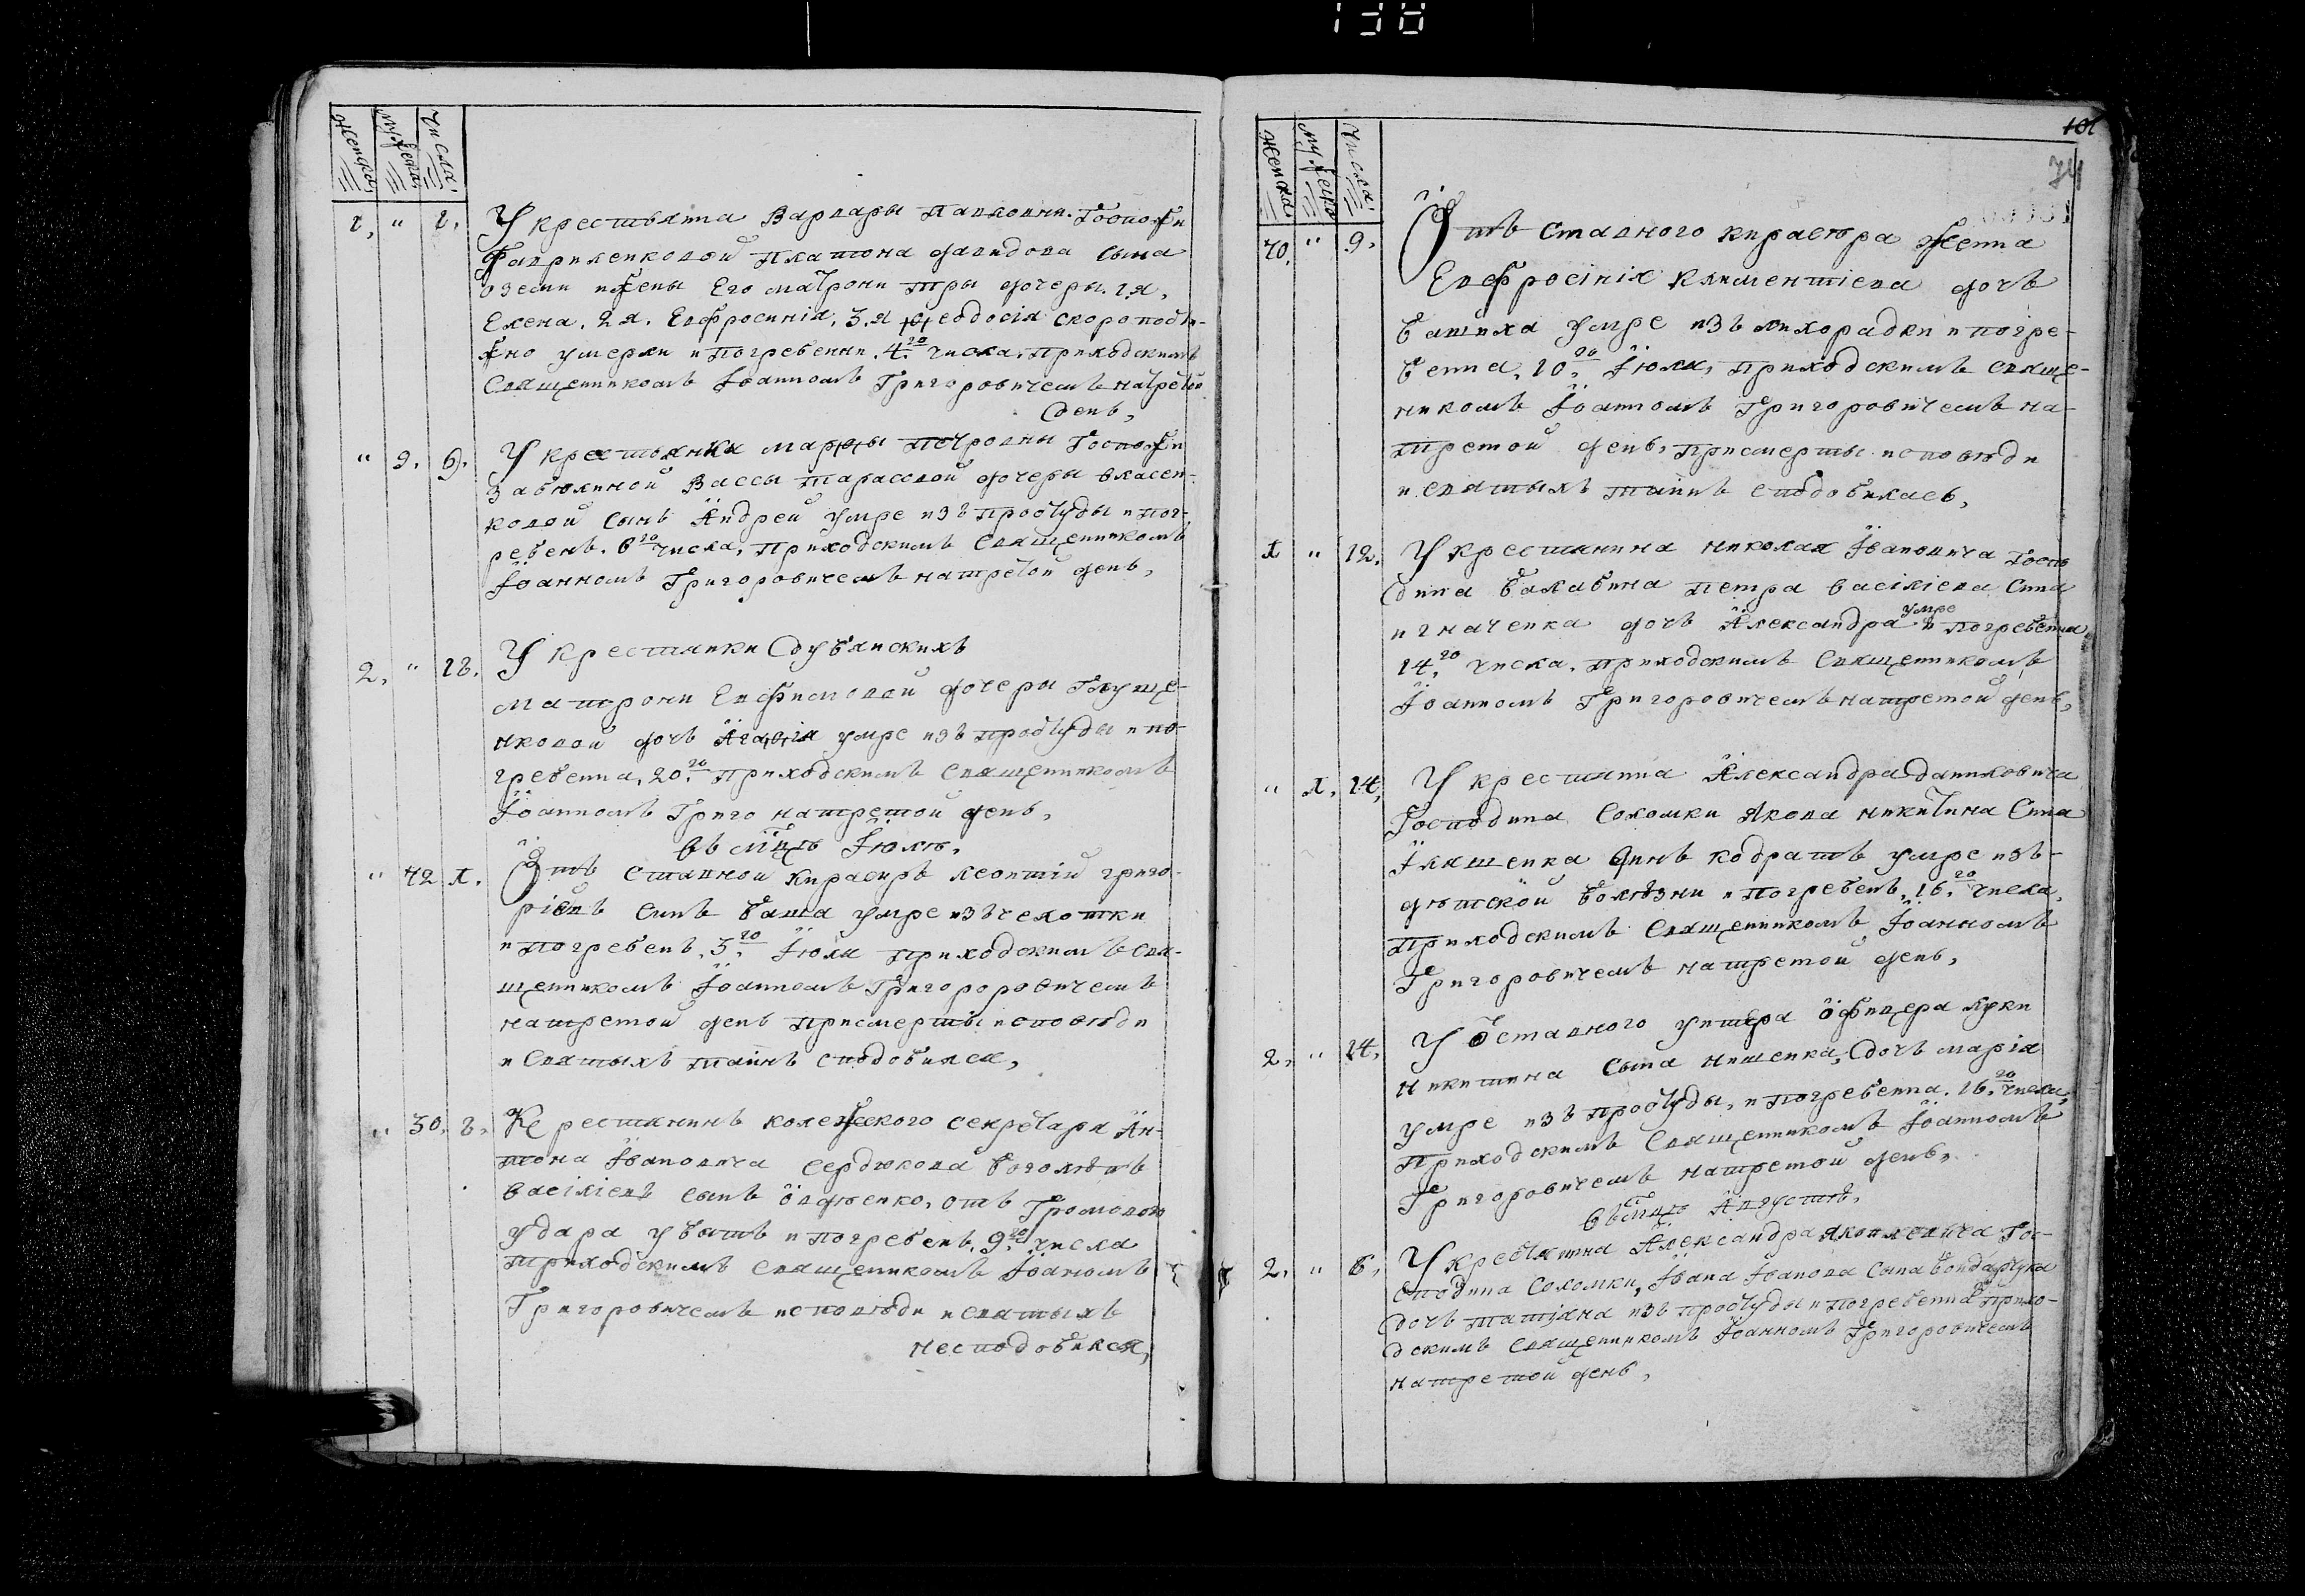 138
Женска
Мужеска
Числа
2, " 2. У крестьянна Варвары Павловни Госпожи
Гавриленковой Платона Давидова сына
и жены Его матрони тры дочеры. 1я,
Елена. 2я. Евфросинія, 3.я Ѳеодосія скоропости-
жно умерли и погребенни. 4.го числа, приходскимъ
Священникомъ Іоанномъ Григоровичемъ на третой
день,
" 9. 6. У крестьянки Марѳы Петровны Госпожи
Забюлиной Вассы Тарассовой дочеры Власен-
ковой сынъ Андрей умре изъ простуды и пог-
ребенъ. 6го числа, Приходскимъ Священникомъ
Іоанномъ Григоровичемъ на третой день,
2, " 18. У крестянки Дубянскихъ
Матрони Евфимовой дочеры Глуще-
нковой дочь Агаѳія умре изъ простуды и по-
гребенна, 20.го Приходскимъ Священникомъ
Іоанномъ Григо на третой день,
въ мцѣ Іюлѣ,
" 42 1. Отъ ставной Кирасиръ Леонтій григо-
ріевъ синъ Баша умре изъ чехотки
и погребенъ, 3.го Іюля приходскимъ Свя-
щенникомъ Іоанномъ Григороровичемъ
на третой день присмерты исповѣди
и Святыхъ таинъ сподобился,
" 30. 8. Крестянинъ колежского секретаря Ан-
тона Івановича Сердюкова Боголѣпъ
Васіліевъ сынъ Овдѣенко, отъ Громового
удара убытъ и погребенъ, 9.го числа
приходскимъ Священникомъ Іоаномъ
Григоровичемъ исповѣди и Святыхъ
несподобился,
101
74
Женска
Мужеска
Числа
40, " 9. Отъ ставного кирасѣра жена
Евфросінія Климентіева дочъ
Башиха умре изъ лихорадки и погре-
бенна, 10.го Іюля, приходскимъ Свяще-
никомъ Іоанномъ Григоровичемъ на-
третой день, присмерты исповѣди
и Святыхъ таинъ сподобилась,
1 " 12. У крестянина Николая Івановича Госпо
дина Балабина Петра Васіліева Сина
игначенка дочъ Александра умре и погребенна,
14.го числа. приходскимъ Священникомъ
Іоанномъ Григоровичемъ на третой день,
" 1. 14, У крестянна Александра Даниловича
Господина Соломки Якова Никитина Сина
Іляшенка Синъ кодратъ умре изъ-
дѣтской болѣзни и погребенъ, 16.го числа,
приходскимъ Священникомъ Іоанномъ
Григоровичемъ на третой день,
2, " 14, У Оставного унтера Офицера Луки
Никитина сына Нишенка, дочъ Марія
умре изъ простуды, и погребенна. 16.го числа,
Приходскимъ Священникомъ Іоанномъ
Григоровичемъ на третой день,
въ мцѣ Августѣ,
2, " 6, У крестянна Александра Яковлевича Гос-
сподина Соломки, Івана Іванова сына Бондарчука
дочъ татіяна изъ простуды и погребенна прихо-
дскимъ Священникомъ Іоанномъ Григоровичемъ
на третой день,